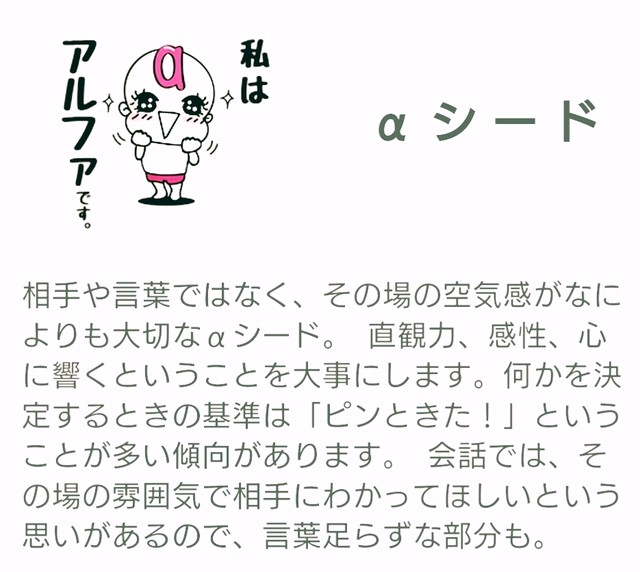 私は
アルファです。
α
αシード
相手や言葉ではなく、その場の空気感がなに
よりも大切なαシード。 直観力、感性、心
に響くということを大事にします。何かを決
定するときの基準は「ピンときた！」という
ことが多い傾向があります。 会話では、そ
の場の雰囲気で相手にわかってほしいという
思いがあるので、言葉足らずな部分も。